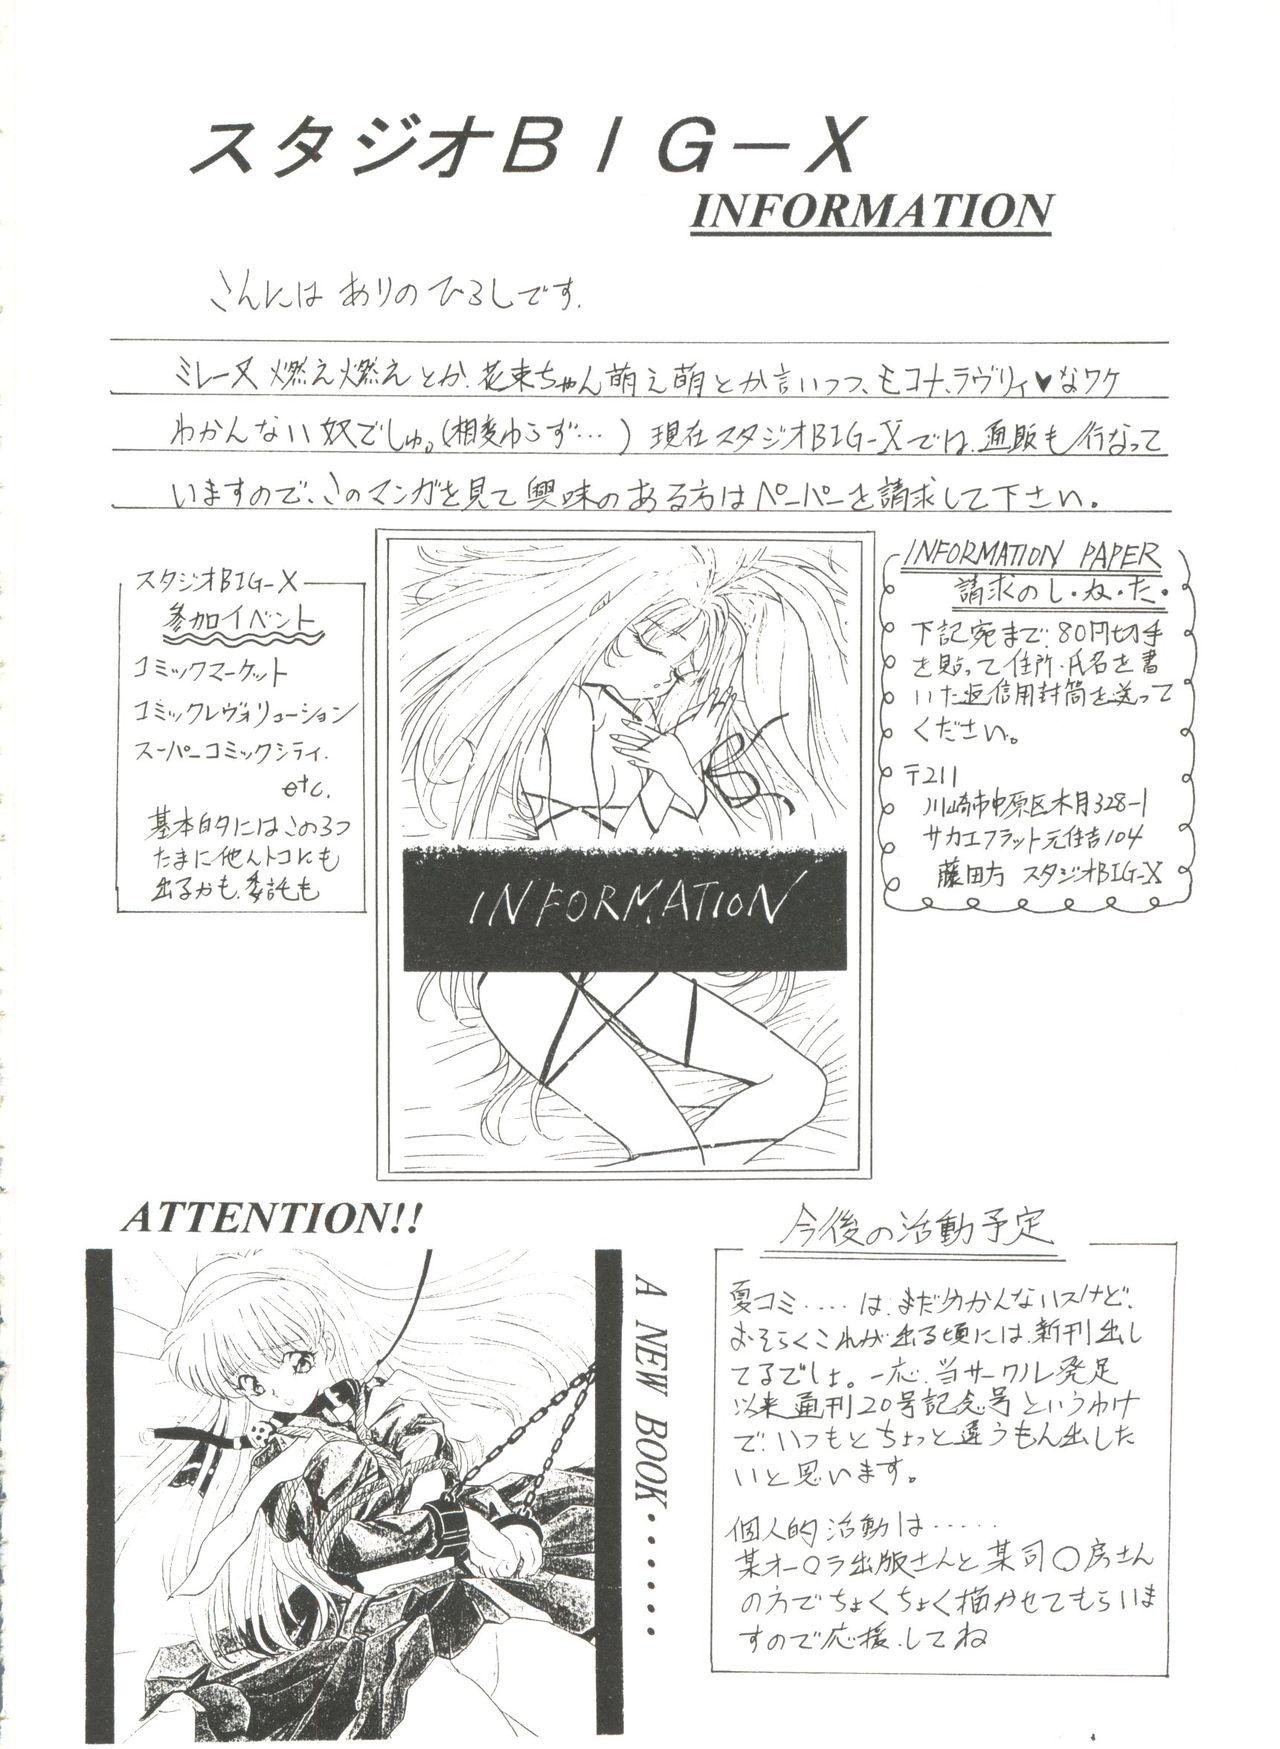 スタジオBIG-X
INFORMATION
こんにちは ありのひろしです.
ミレーヌ燃え燃えとか、花束ちゃん萌え萌とか言いつつ、モコナ、ラヴリィ♥なワケ
わかんない奴でしゅ。(相変わらず…) 現在スタジオBIG-Xでは、通販も行なって
いますので、このマンガを見て興味のある方はペーパーを請求して下さい。
スタジオBIG-X
参加イベント
コミックマーケット
コミックレヴォリューション
スーパーコミックシティ.
etc.
基本的にはこの3つ
たまに他んトコにも
出るかも、委託も
INFORMATION
INFORMATION PAPER
請求のし・か・た・
下記宛まで、80円切手
を貼って住所・氏名を書
いた返信用封筒を送って
ください。
〒211
川崎市中原区木月328-1
サカエフラット元住吉104
藤田方 スタジオBIG-X
ATTENTION!!
A NEW BOOK・・・・・・・
今後の活動予定
夏コミ・・・・は、まだ分かんないスけど、
おそらくこれが出る頃には、新刊出し
てるでしょ。一応、当サークル発足
以来通刊20号記念号というわけ
で、いつもとちょっと違うもん出した
いと思います。
個人的活動は・・・・・
某オー〇ラ出版さんと某司〇房さん
の方でちょくちょく描かせてもらいま
すので応援してね